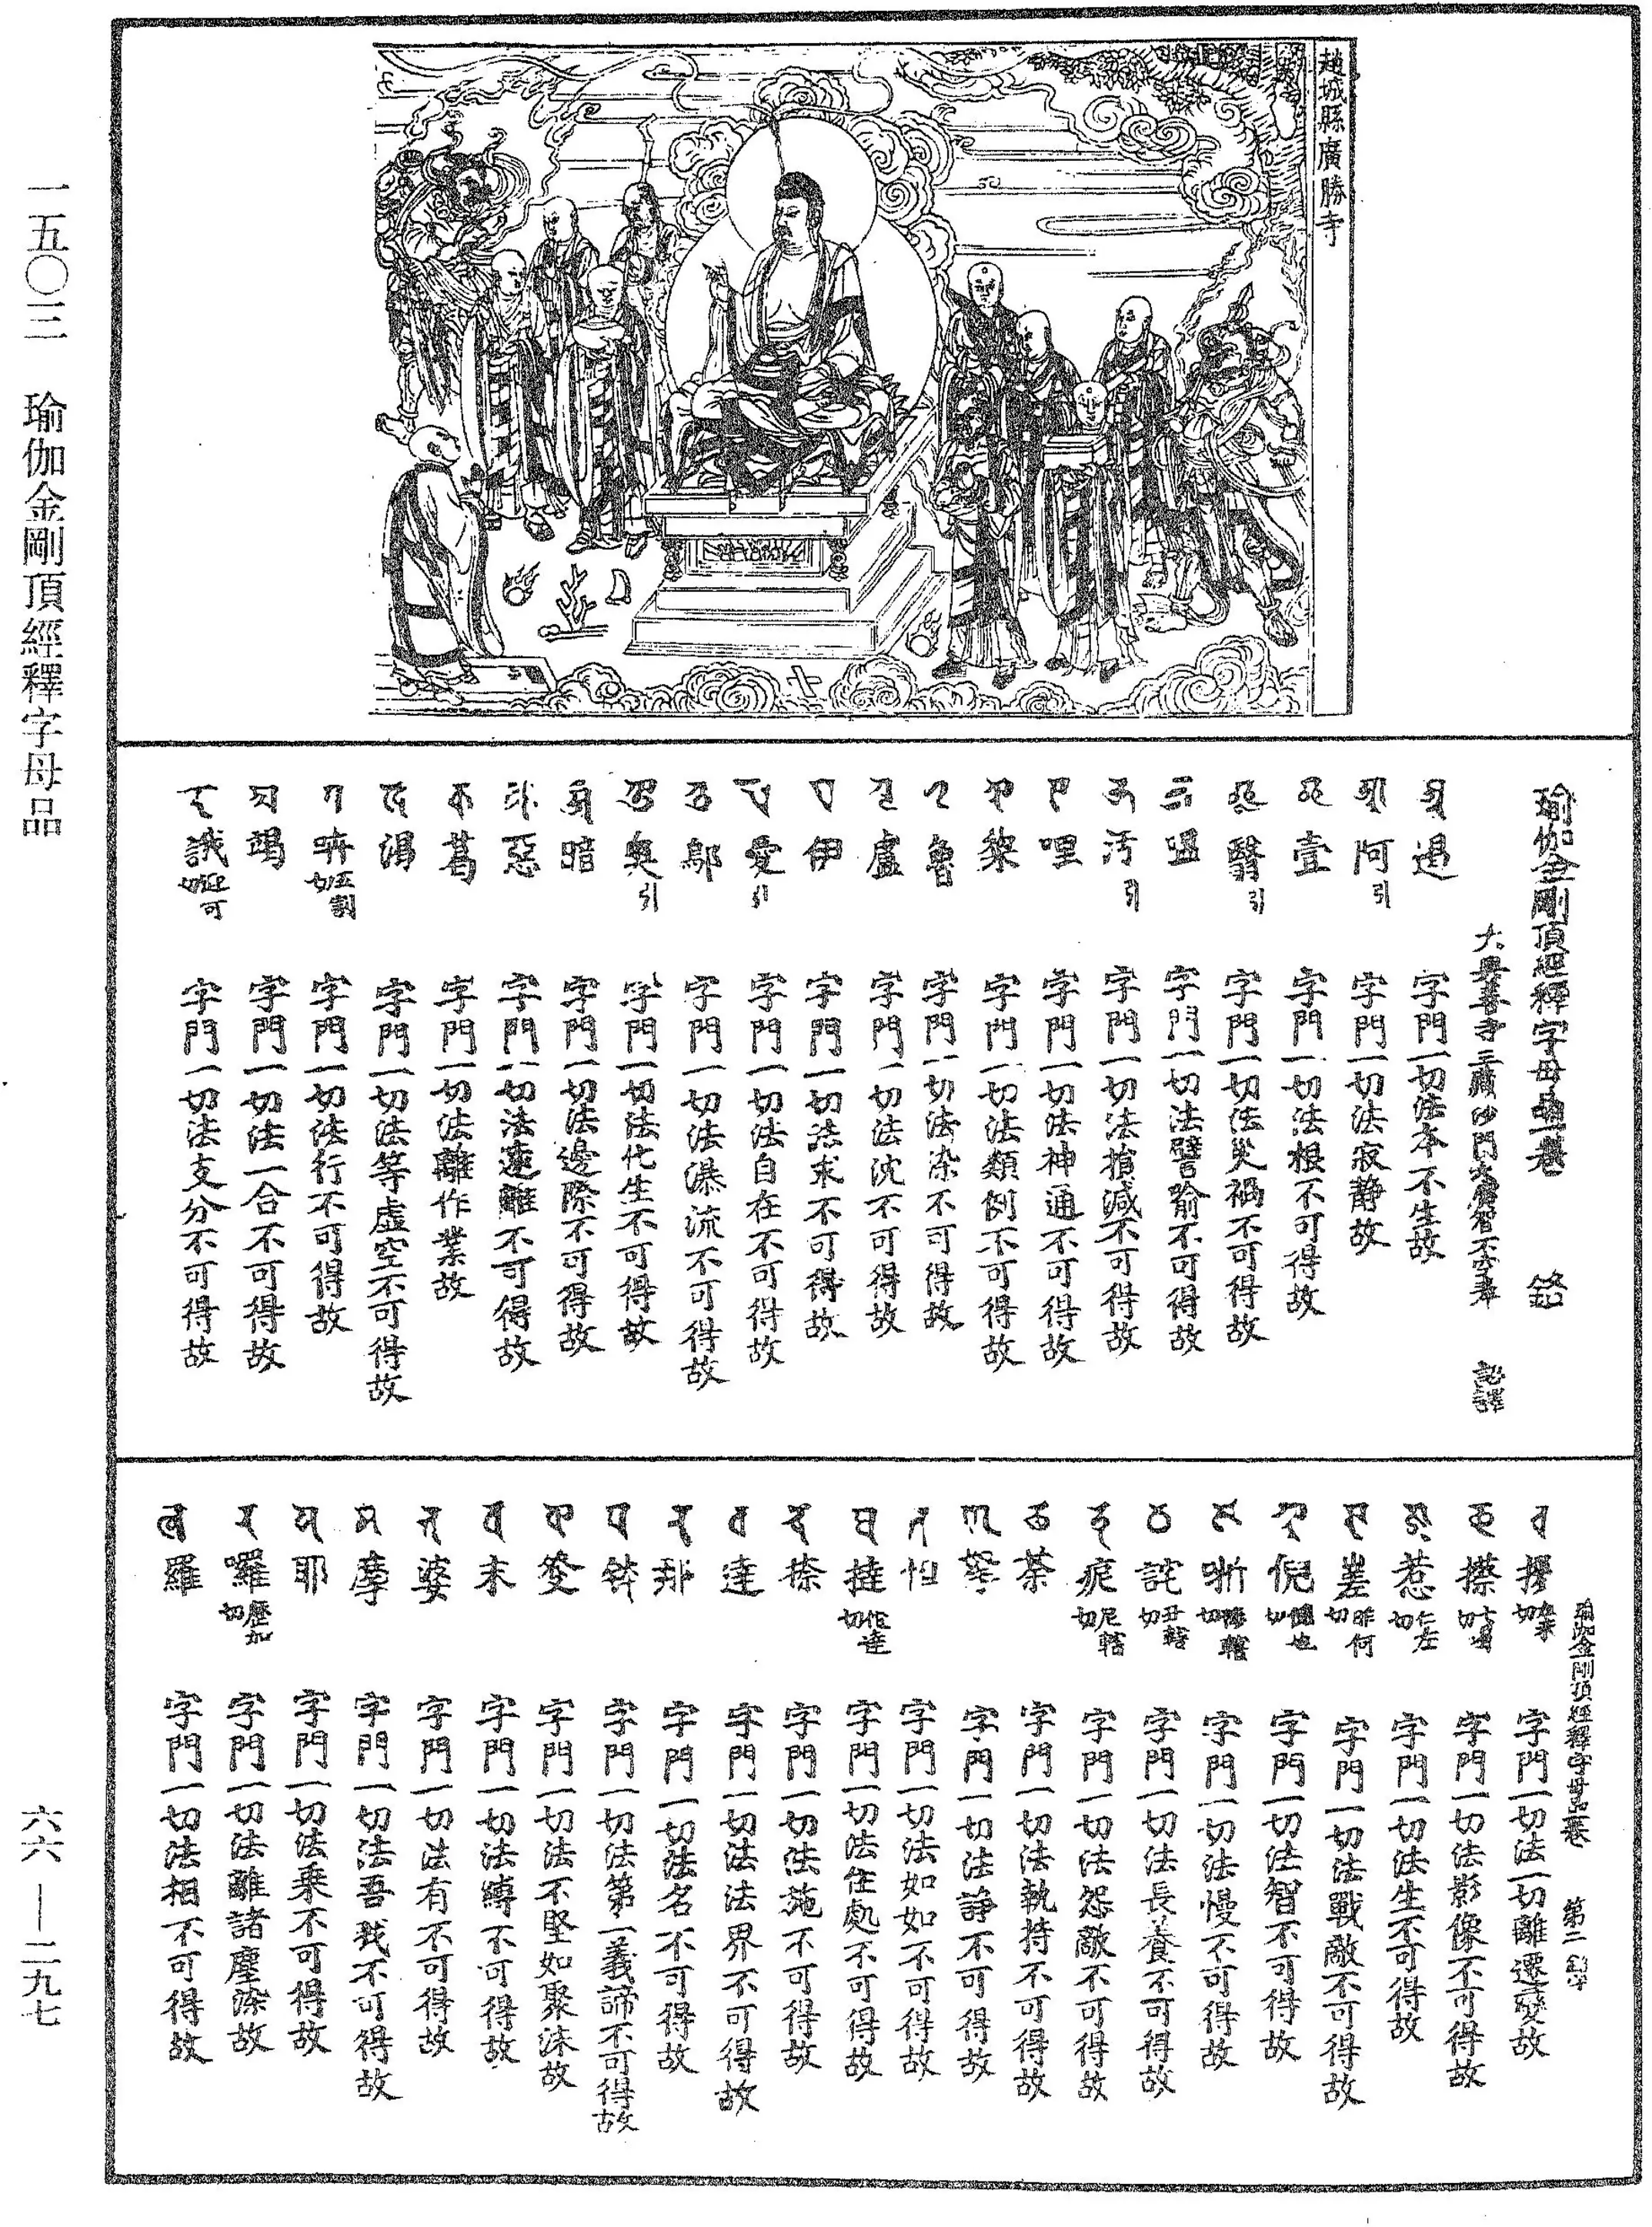 趙城縣廣勝寺
瑜伽金剛頂經釋字母品一卷 銘
大興善寺三藏沙門大廣智不空奉 詔譯
遏 字門一切法本不生故
阿引 字門一切法寂静故
壹 字門一切法根不可得故
翳引 字門一切法災禍不可得故
嗢 字門一切法譬喻不可得故
汚引 字門一切法損減不可得故
哩 字門一切法神通不可得故
梨 字門一切法類例不可得故
魯 字門一切法染不可得故
盧 字門一切法沈不可得故
伊 字門一切法求不可得故
愛引 字門一切法自在不可得故
鄔 字門一切法瀑流不可得故
奥引 字門一切法化生不可得故
暗 字門一切法邊際不可得故
惡 字門一切法遠離不可得故
葛 字門一切法離作業故
渴 字門一切法等虛空不可得故
哳五割切 字門一切法行不可得故
竭 字門一切法一合不可得故
誐迎可切 字門一切法支分不可得故
瑜伽金剛頂經釋字母品一卷 第二
字門一切法一切離遷變故
擦七曷切 字門一切法影像不可得故
惹仁左切 字門一切法生不可得故
嵳昨何切 字門一切法戰敵不可得故
倪 字門一切法智不可得故
哳 字門一切法慢不可得故
詫丑轄切 字門一切法長養不可得故
痆尼轄切 字門一切法怨敵不可得故
荼 字門一切法執持不可得故
拏 字門一切法諍不可得故
怛 字門一切法如如不可得故
撻佗達切 字門一切法住處不可得故
捺 字門一切法施不可得故
達 字門一切法法界不可得故
那 字門一切法名不可得故
鉢 字門一切法第一義諦不可得故
發 字門一切法不堅如聚沫故
末 字門一切法縛不可得故
婆 字門一切法有不可得故
摩 字門一切法吾我不可得故
耶 字門一切法乘不可得故
囉歷加切 字門一切法離諸塵染故
羅 字門一切法相不可得故
一五〇三 瑜伽金剛頂經釋字母品
六六—二九七